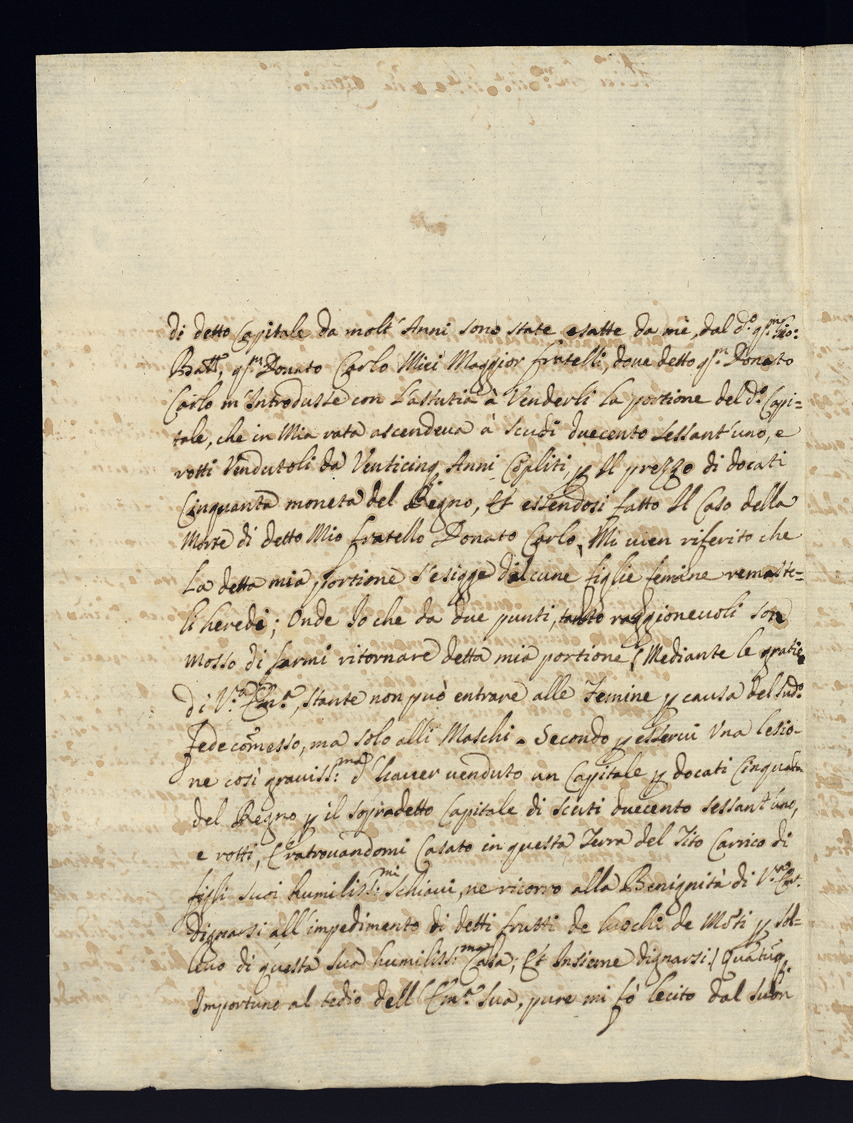 di detto Capitale da molt'Anni sono state esatte da mè, dal d.º qm Gio:
Batt., qm Donato Carlo Miei Maggior fratelli, dove detto qm Donato
Carlo m'Introdusse con L'astutia à Venderli la portione del d.º Capi=
tale, che in Mia rata ascendeva à scudi duecento sessant'uno, e
rotti Vendutoli da Venticinq. Anni Cõpliti, p Il prezzo di docati
Cinquanta moneta del Regno, Et essendosi fatto Il Caso della
Morte di detto Mio fratello Donato Carlo, Mi vien riferito che
La detta mia portione s'esigge d'alcune figlie femine remaste=
li heredi; Onde Io che da due punti, tanto raggionevoli son
mosso di farmi ritornare detta mia portione (Mediante le gratie
di V.ª Em.ª, stante non può entrare alle Femine p causa del sud.º
Fedecõmesso, ma solo alli Maschi. Secondo p esservi Una lesio-
ne così graviss.ma d'haver venduto un Capitale p docati Cinquãta
del Regno p il sopradetto Capitale di scuti duecento sessant'uno,
e rotti, Et ratrovandomi Casato in questa Terra del Tito Carrico di
figli suoi humiliss.mi Schiavi, ne ricorro alla Benignità di V.ra Em.
dignarsi all'impedimento di detti frutti de luochi de Mõti p sol=
levo di questa sua humiliss.ma Casa; Et Insieme dignarsi (Quãtũq.
Importuno al tedio dell'Em.ª Sua, pure mi fò lecito dal suon